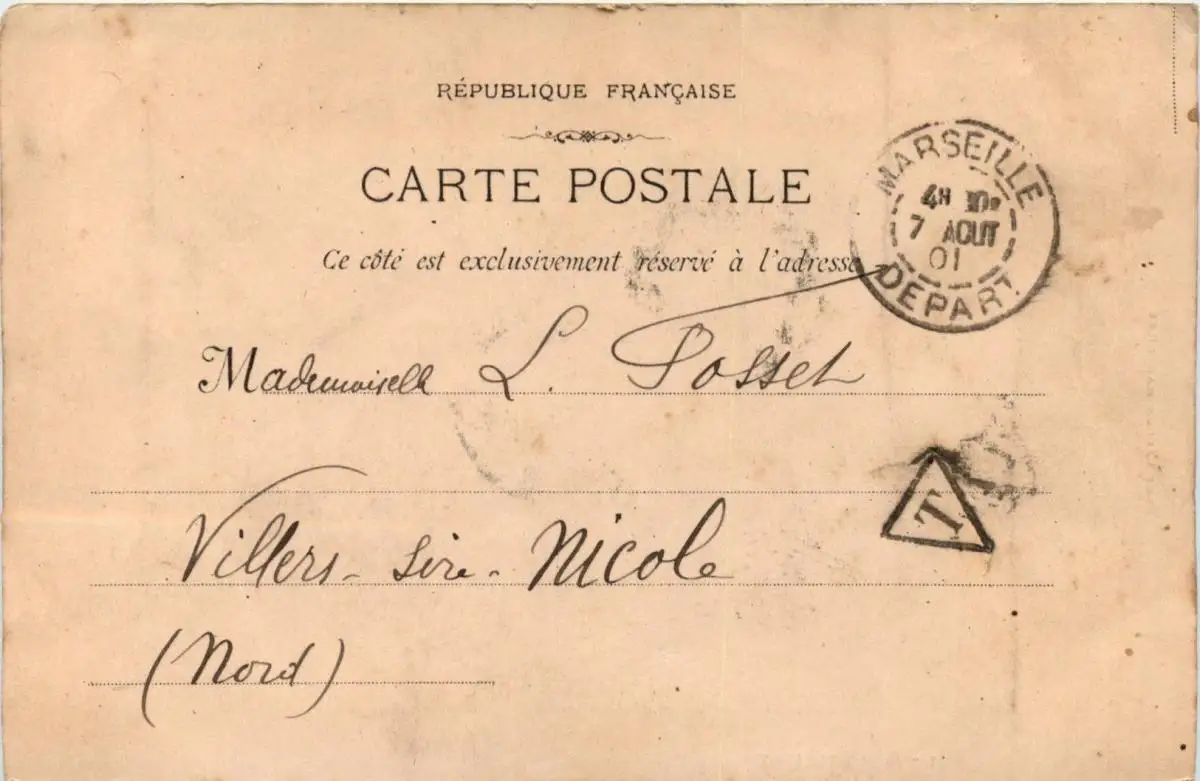 RÉPUBLIQUE FRANÇAISE
CARTE POSTALE
Ce côté est exclusivement réservé à l'adresse
MARSEILLE
4H
7 AOUT
01
DEPART
Mademoiselle L. Posset
T
Villers-Sire-Nicole
(Nord)